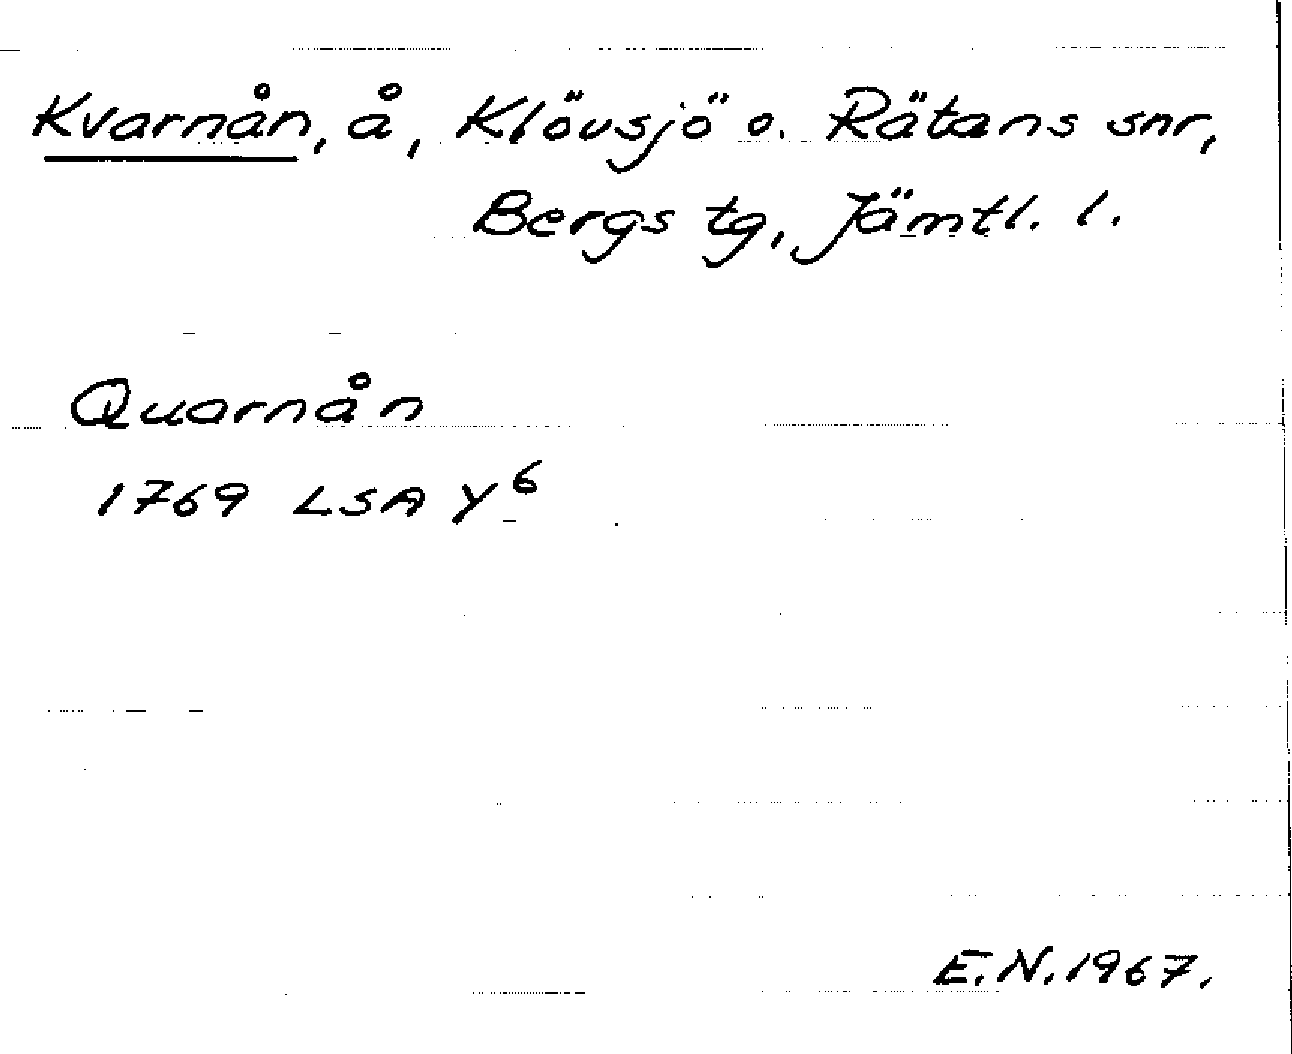 Kvarnån, å, Klövsjö o. Rätans snr,
Bergs tg, Jämtl. l.
Quarnån
1769 LSA Y⁶
E.N. 1967.